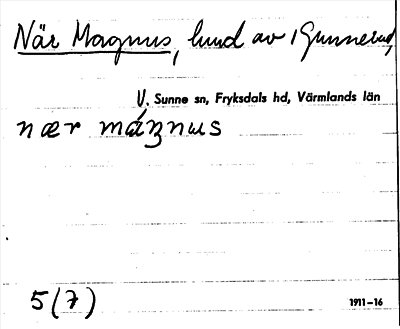 När Magnus, lund av 1 Gunnerud,
V. Sunne sn, Fryksdals hd, Värmlands län
nær máʒnus
5(7)
1911–16